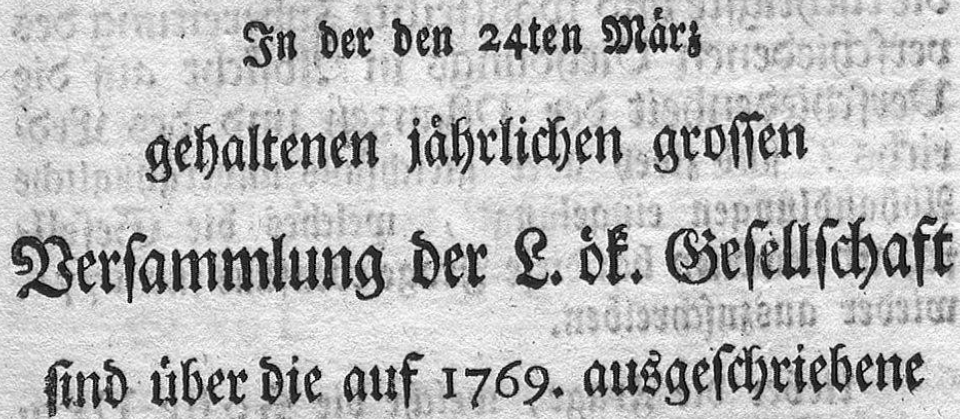 In der den 24ten März
gehaltenen jährlichen groſſen
Verſammlung der L. ök. Geſellſchaft
ſind über die auf 1769. ausgeſchriebene